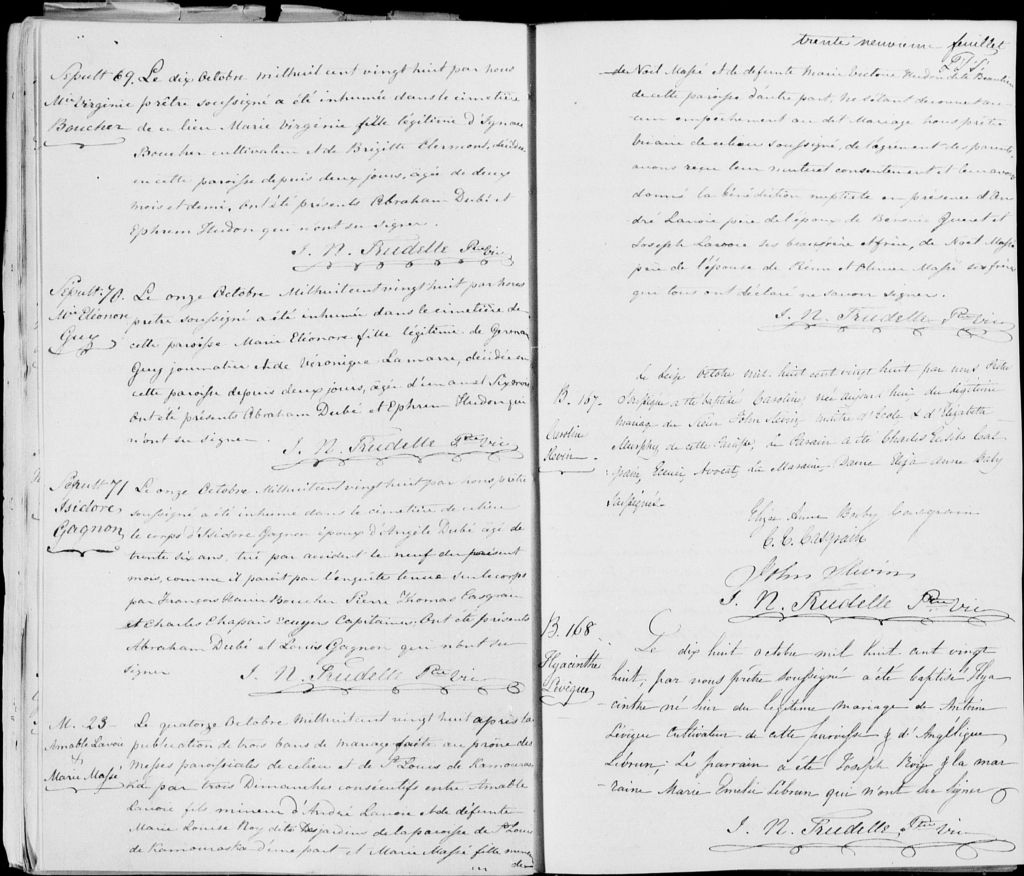 Sepult 69. Le dix Octobre milhuit cent vingt huit par nous
Mie Virginie prêtre soussigné a été inhumée dans le cimetière
Boucher de ce lieu Marie Virginie fille légitime d'Ignace
Boucher cultivateur et de Brigitte Clermont, décédée
en cette paroisse depuis deux jours, agée de deux
mois et demi, Ont été présents Abraham Dubé et
Ephrem Hudon qui n'ont su signer.
J. N. Trudelle Ptre Vic
Sepult. 70. Le onze Octobre Milhuit cent vingt huit par nous
Mie Eléonore prêtre soussigné a été inhumée dans le cimetière de
Guy cette paroisse Marie Eléonore fille légitime de
Guy journalier et de Véronique Lamarre, décédée en
cette paroisse depuis deux jours, agée d'un an et six mois
Ont été présents Abraham Dubé et Ephrem Hudon qui
n'ont su signer
J. N. Trudelle Ptre Vic
Sepult 71 Le onze Octobre Milhuit cent vingt huit par nous, prêtre
Isidore soussigné a été inhumé dans le cimetière de ce lieu
Gagnon le corps d'Isidore Gagnon époux d'Angèle Dubé agé de
trente six ans, tué par accident le neuf du présent
mois, comme il paroit par l'enquête tenue sur le corps
par François Boucher Pierre Thomas Casgrain
et Charles Chapais Ecuyers Capitaines; Ont été présents
Abraham Dubé et Louis Gagnon qui n'ont su
signer
J. N. Trudelle Ptre Vic
M. 23 Le quatorze Octobre Milhuit cent vingt huit après la
Amable Lavoie publication de trois bans de mariage faite au prône des
& messes paroissiales de ce lieu et de St Louis de Kamouras
Marie Massé ka par trois Dimanches consécutifs entre Amable
Lavoie fils mineur d'André Lavoie et de défunte
Marie Louise Roy dite Desjardins de la paroisse de St Louis
de Kamouraska d'une part et Marie Massé fille mineure
trente neuvieme feuillet
de Noël Massé et de defunte Marie Hudon dite Beaulieu
de cette paroisse d'autre part, ne s'étant découvert au
cun empêchement au dit Mariage nous prêtre
Vicaire de ce lieu soussigné, de l'agrément des parents
avons reçu leur mutuel consentement et leur avons
donné la bénédiction nuptiale en présence d'An
dré Lavoie père de l'époux de Bénonie Queret et
Joseph Lavoie ses beaufrère et frère, de Noël Massé
père de l'épouse de Rémi et Olivier Massé ses frères
qui tous ont déclaré ne savoir signer.
J. N. Trudelle Ptre Vic
Le seize octobre mil huit cent vingt huit par nous Prêtre
B. 167. Soussigné a été baptisée Caroline, née aujourd'hui du légitime
Caroline mariage du Sieur John Slevin maître d'Ecole & d'Elizabeth
Slevin Murphy de cette Paroisse, le Parain a été Charles Eusèbe Cas
grain, Ecuier, Avocat, La Maraine, Dame Eliza Anne Baby
Soussignés.
Eliza Anne Baby Casgrain
C. E. Casgrain
John Slevin
J. N. Trudelle Ptre Vic
B. 168 Le dix huit octobre mil huit cent vingt
Hyacinthe huit, par nous prêtre soussigné a été baptisé Hya
Lévêque cinthe né hier du legitime mariage de Antoine
Lévêque Cultivateur de cette paroisse & d'Angélique
Lebrun; Le parrain a été Joseph & la mar
raine Marie Emelie Lebrun qui n'ont su signer
J. N. Trudelle Ptre Vic